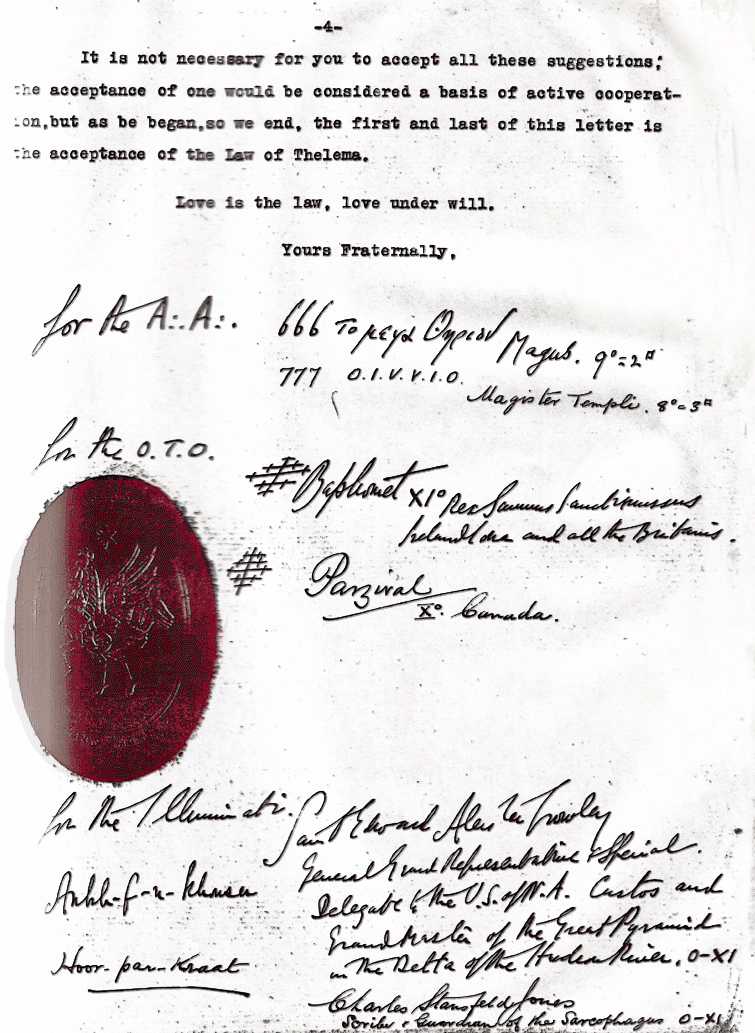 -4-
It is not necessary for you to accept all these suggestions;
the acceptance of one would be considered a basis of active cooperat-
ion,but as be began,so we end, the first and last of this letter is
the acceptance of the Law of Thelema.
Love is the law, love under will.
Yours Fraternally,
for the A∴A∴.
666 Το μεγα Θηριον Magus. 9°=2□
777 O.I.V.V.I.O.
Magister Templi. 8°=3□
for the O.T.O.
Baphomet XI° Rex Summus Sanctissimus
Ireland Iona and all the Britains.
Parzival
X° Canada.
for the Illuminati.
Saint Edward Aleister Crowley
General Grand Representative & Special
Delegate to the U.S. of N.A. Custos and
Grand Master of the Great Pyramid
in the Delta of the Hudson River, O-XI
Ankh-f-n-Khonsu
Hoor-par-Kraat
Charles Stansfeld Jones
Scribe & Guardian of the Sarcophagus O-XI